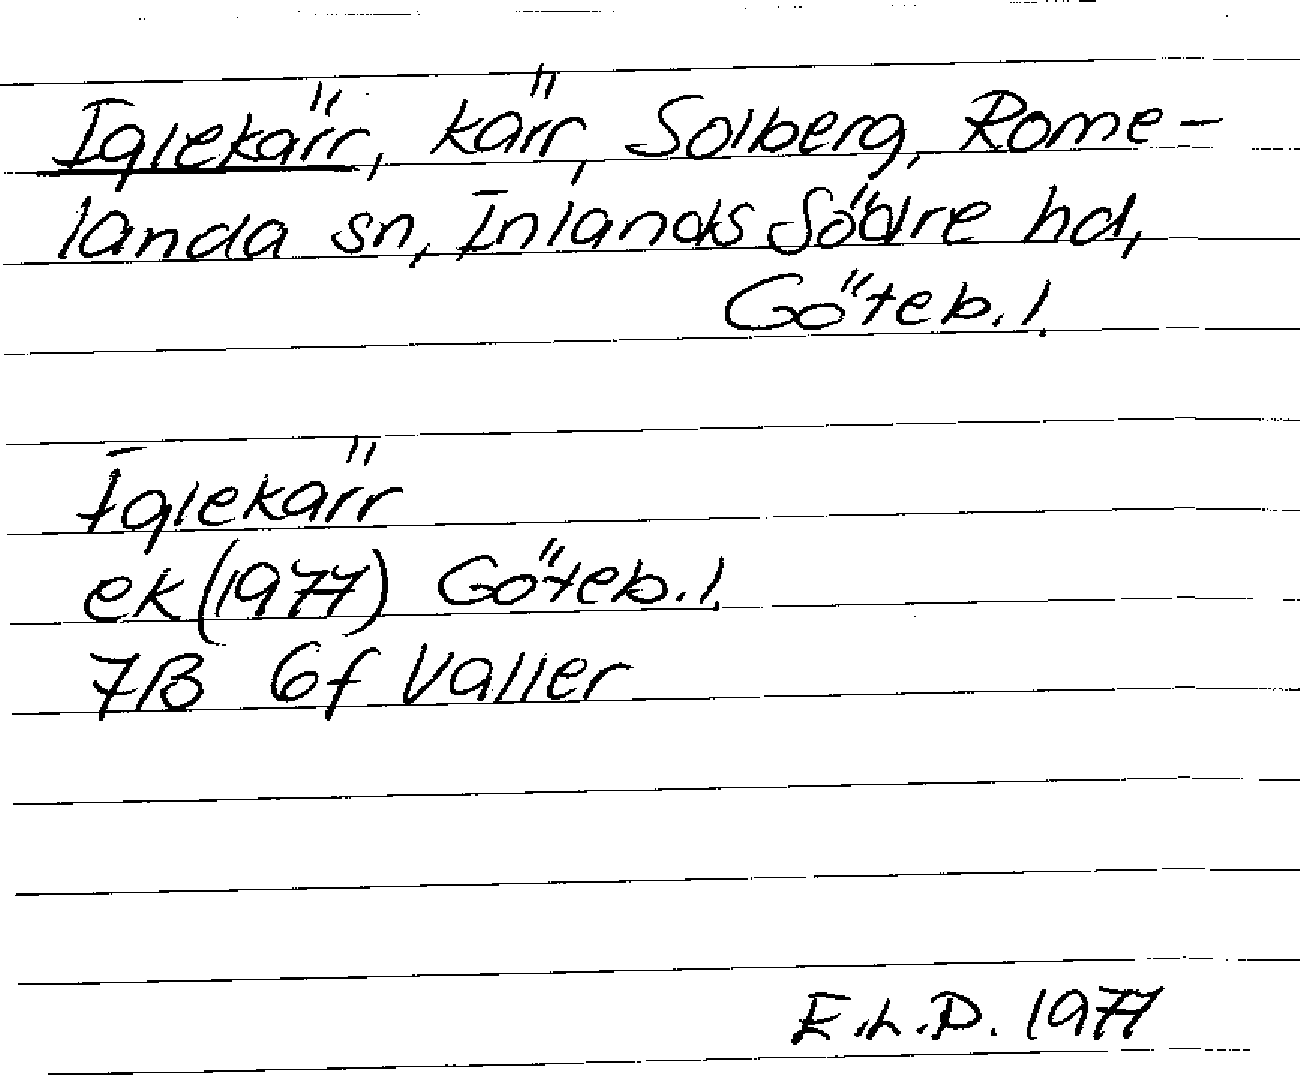 Iglekärr, kärr, Solberg, Rome-
landa sn, Inlands Södre hd,
Göteb. l.
Iglekärr
ek (1977) Göteb. l.
7B 6f Valler
E.L.D. 1977